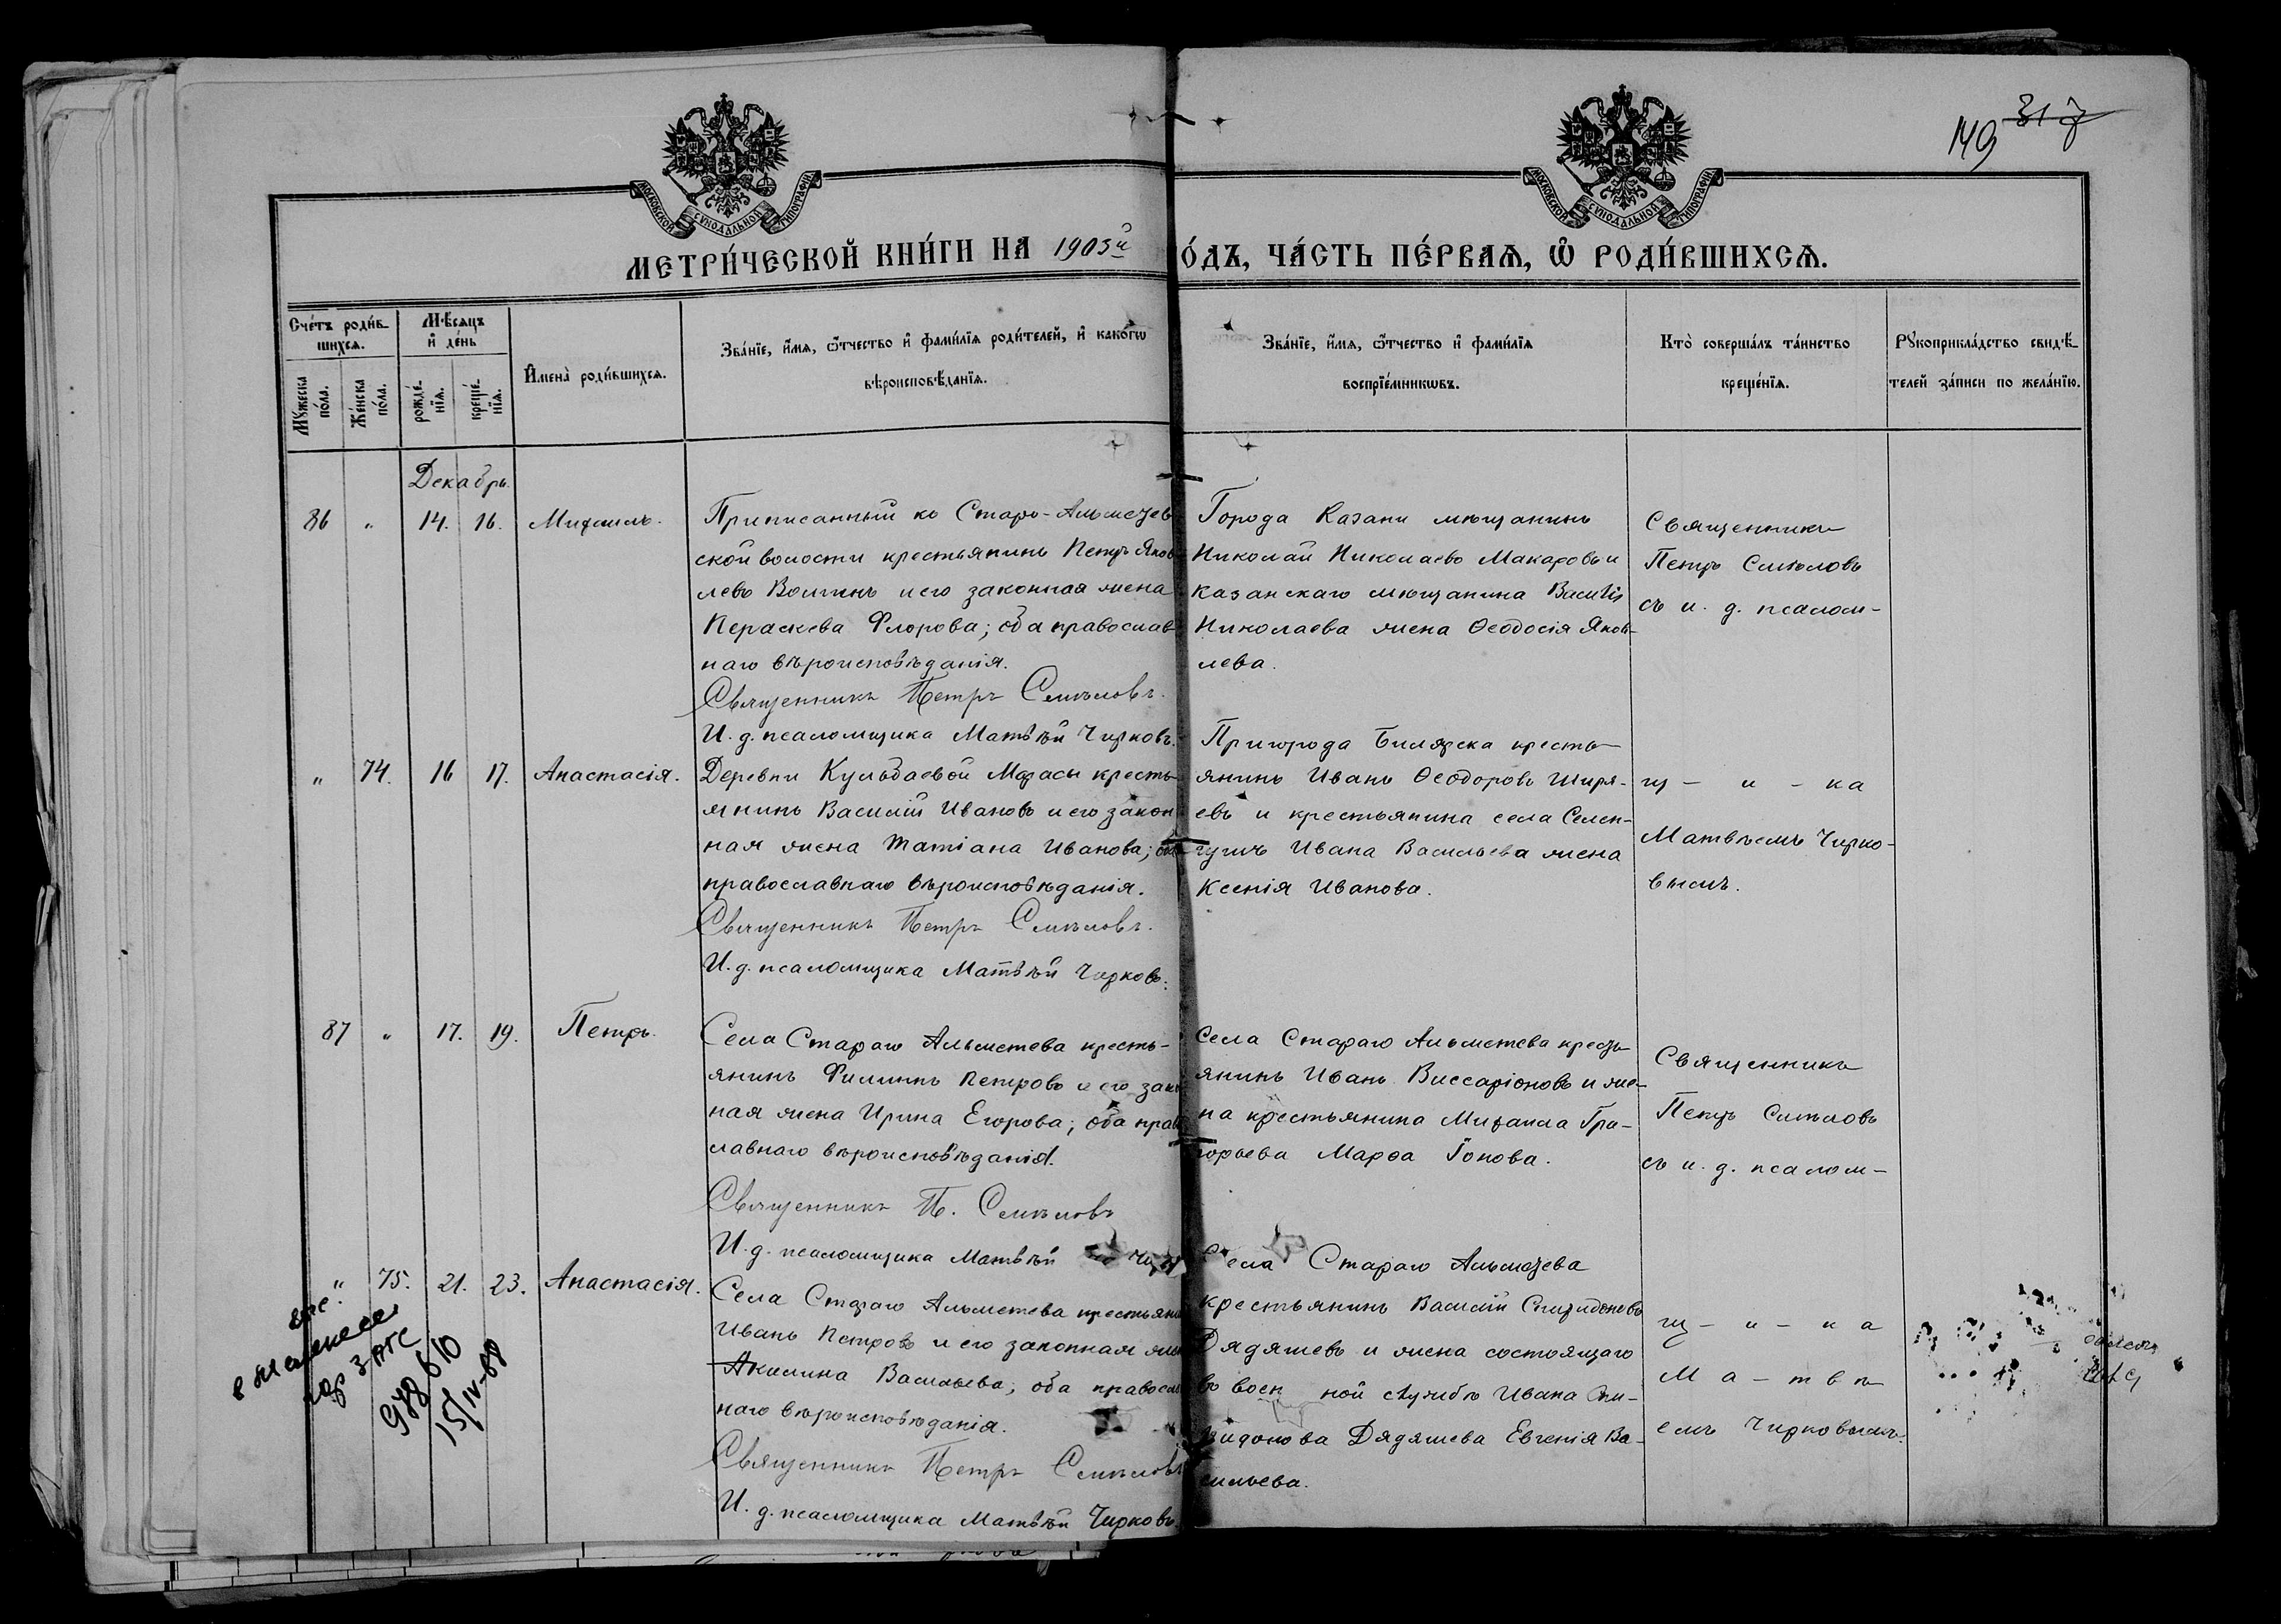 149 317
МОСКОВСКОЙ СУНОДАЛЬНОЙ ТИПОГРАФІИ
МОСКОВСКОЙ СУНОДАЛЬНОЙ ТИПОГРАФІИ
МЕТРИ́ЧЕСКОЙ КНИ́ГИ НА 1903й
О́ДЪ, ЧА́СТЬ ПЕ́РВАѦ, Ѽ РОДИ́ВШИХСѦ.
Сче́тъ роди́в-
шихсѧ.
Мꙋ́жеска
по́ла.
Же́нска
по́ла.
Мѣ́сѧцъ
и҆ де́нь
рожде́-
нїѧ.
креще́-
нїѧ.
И҆мена̀ роди́вшихсѧ.
Зва́нїе, и҆́мѧ, ѻ҆́тчество и҆ фами́лїѧ роди́телей, и҆ како́гѡ
вѣроисповѣ́данїѧ.
Зва́нїе, и҆́мѧ, ѻ҆́тчество и҆ фами́лїѧ
воспрїе́мникѡвъ.
Кто̀ соверша́лъ та́инство
креще́нїѧ.
Рꙋкоприкла́дство свидѣ́-
телей за́писи по жела́нїю.
Декабрь.
86 " 14. 16. Михаилъ.
Приписанный ко Старо-Альметев-
ской волости крестьянинъ Петръ Яков-
левъ Волгинъ и его законная жена
Параскева Флорова; оба православ-
наго вѣроисповѣданія.
Священникъ Петръ Смѣловъ.
И. д. псаломщика Матвѣй Чирковъ.
Города Казани мѣщанинъ
Николай Николаевъ Макаровъ и
казанскаго мѣщанина Василія
Николаева жена Ѳеодосія Яков-
лева.
Священникъ
Петръ Смѣловъ
съ и. д. псалом-
" 74. 16 17. Анастасія.
Деревни Кульбаевой Марасы кресть-
янинъ Василій Ивановъ и его закон-
ная жена Татіана Иванова; оба
православнаго вѣроисповѣданія.
Священникъ Петръ Смѣловъ.
И. д. псаломщика Матвѣй Чирковъ.
Пригорода Билярска кресть-
янинъ Иванъ Ѳеодоровъ Ширя-
евъ и крестьянина села Селен-
гушъ Ивана Васильева жена
Ксенія Иванова.
щ - и - ка
Матвѣемъ Чирко-
вымъ.
87 " 17. 19. Петръ.
Села Стараго Альметева кресть-
янинъ Филиппъ Петровъ и его закон
ная жена Ирина Егорова; оба право
славнаго вѣроисповѣданія.
Священникъ П. Смѣловъ
И. д. псаломщика Матвѣй
Села Стараго Альметева кресть
янинъ Иванъ Виссаріоновъ и же-
на крестьянина Михаила Гри-
горьева Марѳа Іонова.
Священникъ
Петръ Смѣловъ
съ и. д. псалом-
" 75. 21. 23. Анастасія.
Села Стараго Альметева крестьянинъ
Иванъ Петровъ и его законная жена
Акилина Васильева; оба православ
наго вѣроисповѣданія.
Священникъ Петръ Смѣловъ
И. д. псаломщика Матвѣй Чирковъ.
Села Стараго Альметева
крестьянинъ Василій Спиридоновъ
Дядяшевъ и жена состоящаго
въ воен ной службѣ Ивана Спи-
ридонова Дядяшева Евгенія Ва-
сильева.
щ - и - к а
М а - т в ѣ
емъ Чирковымъ.
ЗАГС
15/IV-68